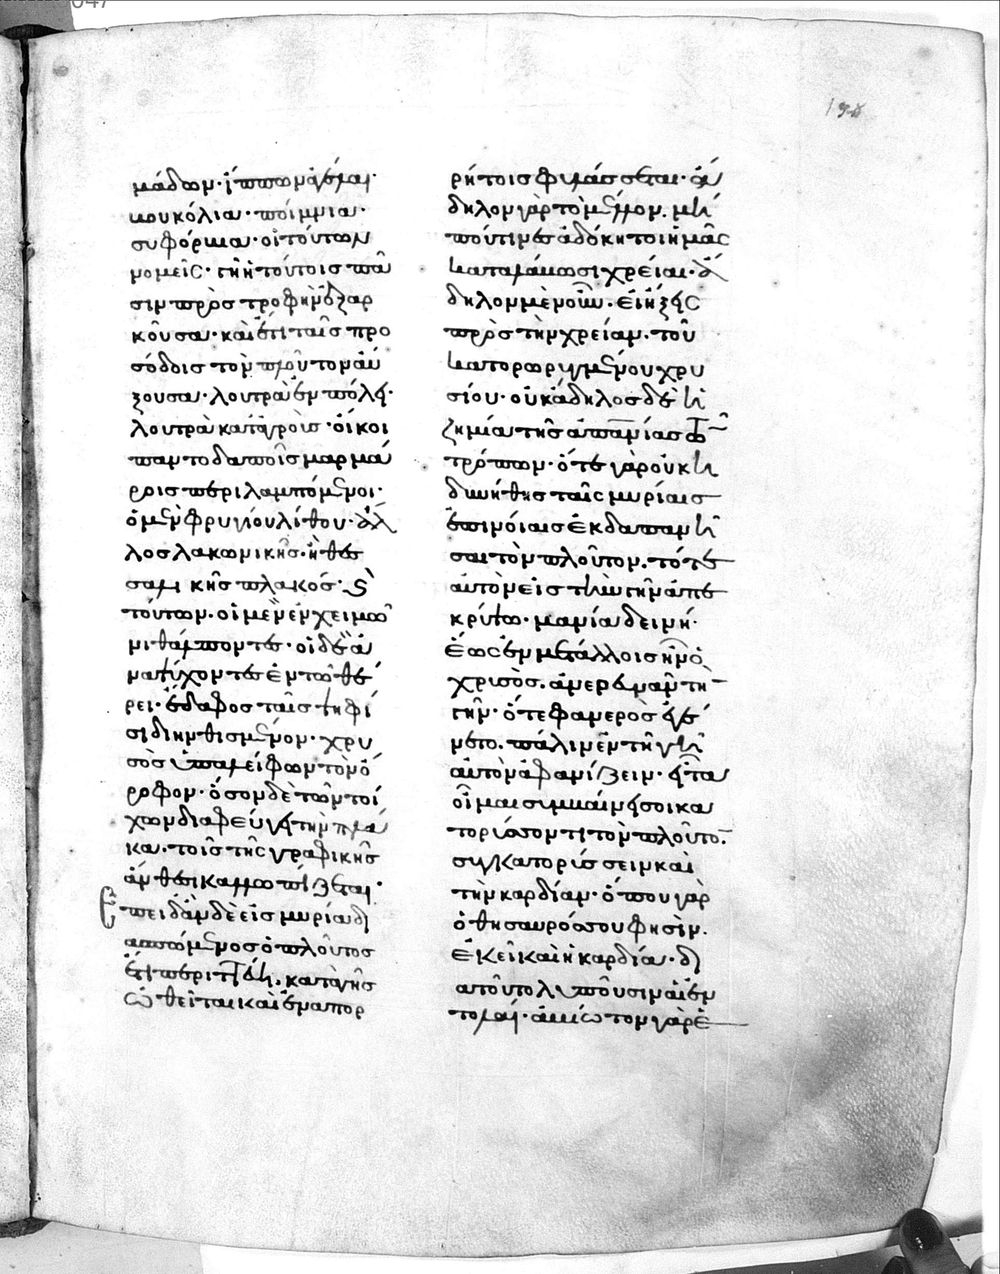 μάδων· ἱππων ἀγέλαι·
βουκόλια· ποίμνια·
συφόρβια· οἱ τούτων
νομεῖς· γῆ ἡ τούτοις πᾶ
σιν πρὸς τροφὴν ἐξαρ
κοῦσα· καὶ ἔτι ταῖς προ
σόδοις τὸν πλοῦτον αὔ
ξουσα· λουτρὰ ἐν πόλει·
λουτρὰ κατ' ἀγροὺς· οἶκοι
παντοδαποῖς μαρμά
ροις περιλαμπόμενοι·
ὁ μὲν φρυγίου λίθου· ἄλ
λος λακωνικῆς· ἢ θεσ
σαλικῆς πλακός· καὶ
τούτων· οἱ μὲν ἐν χειμῶ
νι θάλποντες· οἱ δὲ ἀ
ναψύχοντες ἐν τῶ θέ
ρει· ἔδαφος ταῖς ψηφί
σι διηνθισμένον· χρυ
σὸς ὑπαλείφων τὸν ὄ
ροφον· ὅσον δὲ τῶν τοί
χων διαφεύγει τὴν πλά
κα· τοῖς τῆς γραφικῆς
ἄνθεσι καλλωπίζεται·
Ἐπειδὰν δὲ εἰς μυρία δι
ασπώμενος ὁ πλοῦτος
ἔτι περιττεύη· κατὰ γῆς
ὠθεῖται καὶ ἐν ἀπορ
ρήτοις φυλάσσεται· ἄ
δηλον γὰρ τὸ μέλλον· μή
πού τινες ἀδόκητοι ἡμᾶς
καταλάβωσι χρεῖαι· ἄ
δηλον μὲν οὖν· εἰ ἥξεις
πρὸς τὴν χρείαν· τοῦ
κατορωρυγμένου χρυ
σίου· οὐκ ἄδηλος δὲ ἡ
ζημία τῆς ἀπανθρωπίας τῶν
τρόπων· ὅτε γὰρ οὐκ ἠ
δυνήθης ταῖς μυρίαις
ἐπινοίαις ἐκδαπανῆ
σαι τὸν πλοῦτον· τότε
αὐτὸν εἰς τὴν γῆν ἀπέ
κρύψω· μανία δεινή·
ἕως ἐν μετάλλοις ἦν ὁ
χρυσὸς· ἀνερευνᾶν τὴν
γῆν· ὅτε φανερὸς ἐγέ
νετο· πάλιν ἐν τῆ γῆ
αὐτὸν ἀφανίζειν· εἶτα
οἶμαι συμβαίνει σοι κα
τορύσσοντι τὸν πλοῦτον·
συγκατορύσσειν καὶ
τὴν καρδίαν· ὅπου γὰρ
ὁ θησαυρός σου φησὶν·
ἐκεῖ καὶ ἡ καρδία· δι
α τοῦτο λυποῦσιν αἱ ἐν
τολαὶ· ἀβίωτον γὰρ ἑ